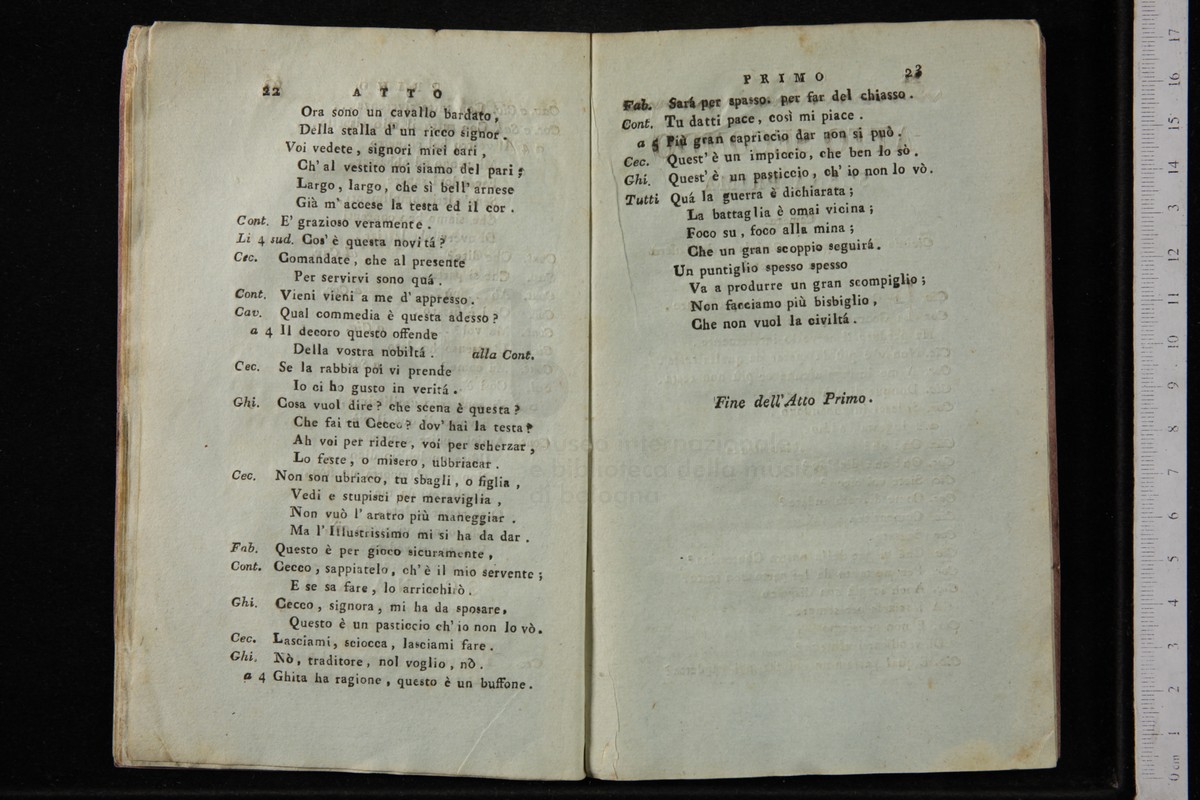 22 ATTO
Ora sono un cavallo bardato,
Della stalla d' un ricco signor.
Voi vedete, signori miei cari,
Ch' al vestito noi siamo del pari;
Largo, largo, che sì bell' arnese
Già m' accese la testa ed il cor.
Cont. E' grazioso veramente.
Li 4 sud. Cos' è questa novitá?
Cec. Comandate, che al presente
Per servirvi sono quá.
Cont. Vieni vieni a me d' appresso.
Cav. Qual commedia è questa adesso?
a 4 Il decoro questo offende
Della vostra nobiltá. alla Cont.
Cec. Se la rabbia poi vi prende
Io ci ho gusto in veritá.
Ghi. Cosa vuol dire? che scena è questa?
Che fai tu Cecco? dov' hai la testa?
Ah voi per ridere, voi per scherzar,
Lo feste, o misero, ubbriacar.
Cec. Non son ubriaco, tu sbagli, o figlia,
Vedi e stupisci per meraviglia,
Non vuò l' aratro più maneggiar.
Ma l' Illustrissimo mi si ha da dar.
Fab. Questo è per gioco sicuramente,
Cont. Cecco, sappiatelo, ch' è il mio servente;
E se sa fare, lo arricchirò.
Ghi. Cecco, signora, mi ha da sposare,
Questo è un pasticcio ch' io non lo vò.
Cec. Lasciami, sciocca, lasciami fare.
Ghi. Nò, traditore, nol voglio, nò.
a 4 Ghita ha ragione, questo è un buffone.
PRIMO 23
Fab. Sará per spasso. per far del chiasso.
Cont. Tu datti pace, così mi piace.
a 4 Più gran capriccio dar non si può.
Cec. Quest' è un impiccio, che ben lo sò.
Ghi. Quest' è un pasticcio, ch' io non lo vò.
Tutti Quá la guerra è dichiarata;
La battaglia è omai vicina;
Foco su, foco alla mina;
Che un gran scoppio seguirá.
Un puntiglio spesso spesso
Va a produrre un gran scompiglio;
Non facciamo più bisbiglio,
Che non vuol la civiltá.
Fine dell' Atto Primo.
museo internazionale
e biblioteca della musica
di bologna
0 cm 1 2 3 4 5 6 7 8 9 10 11 12 13 14 15 16 17